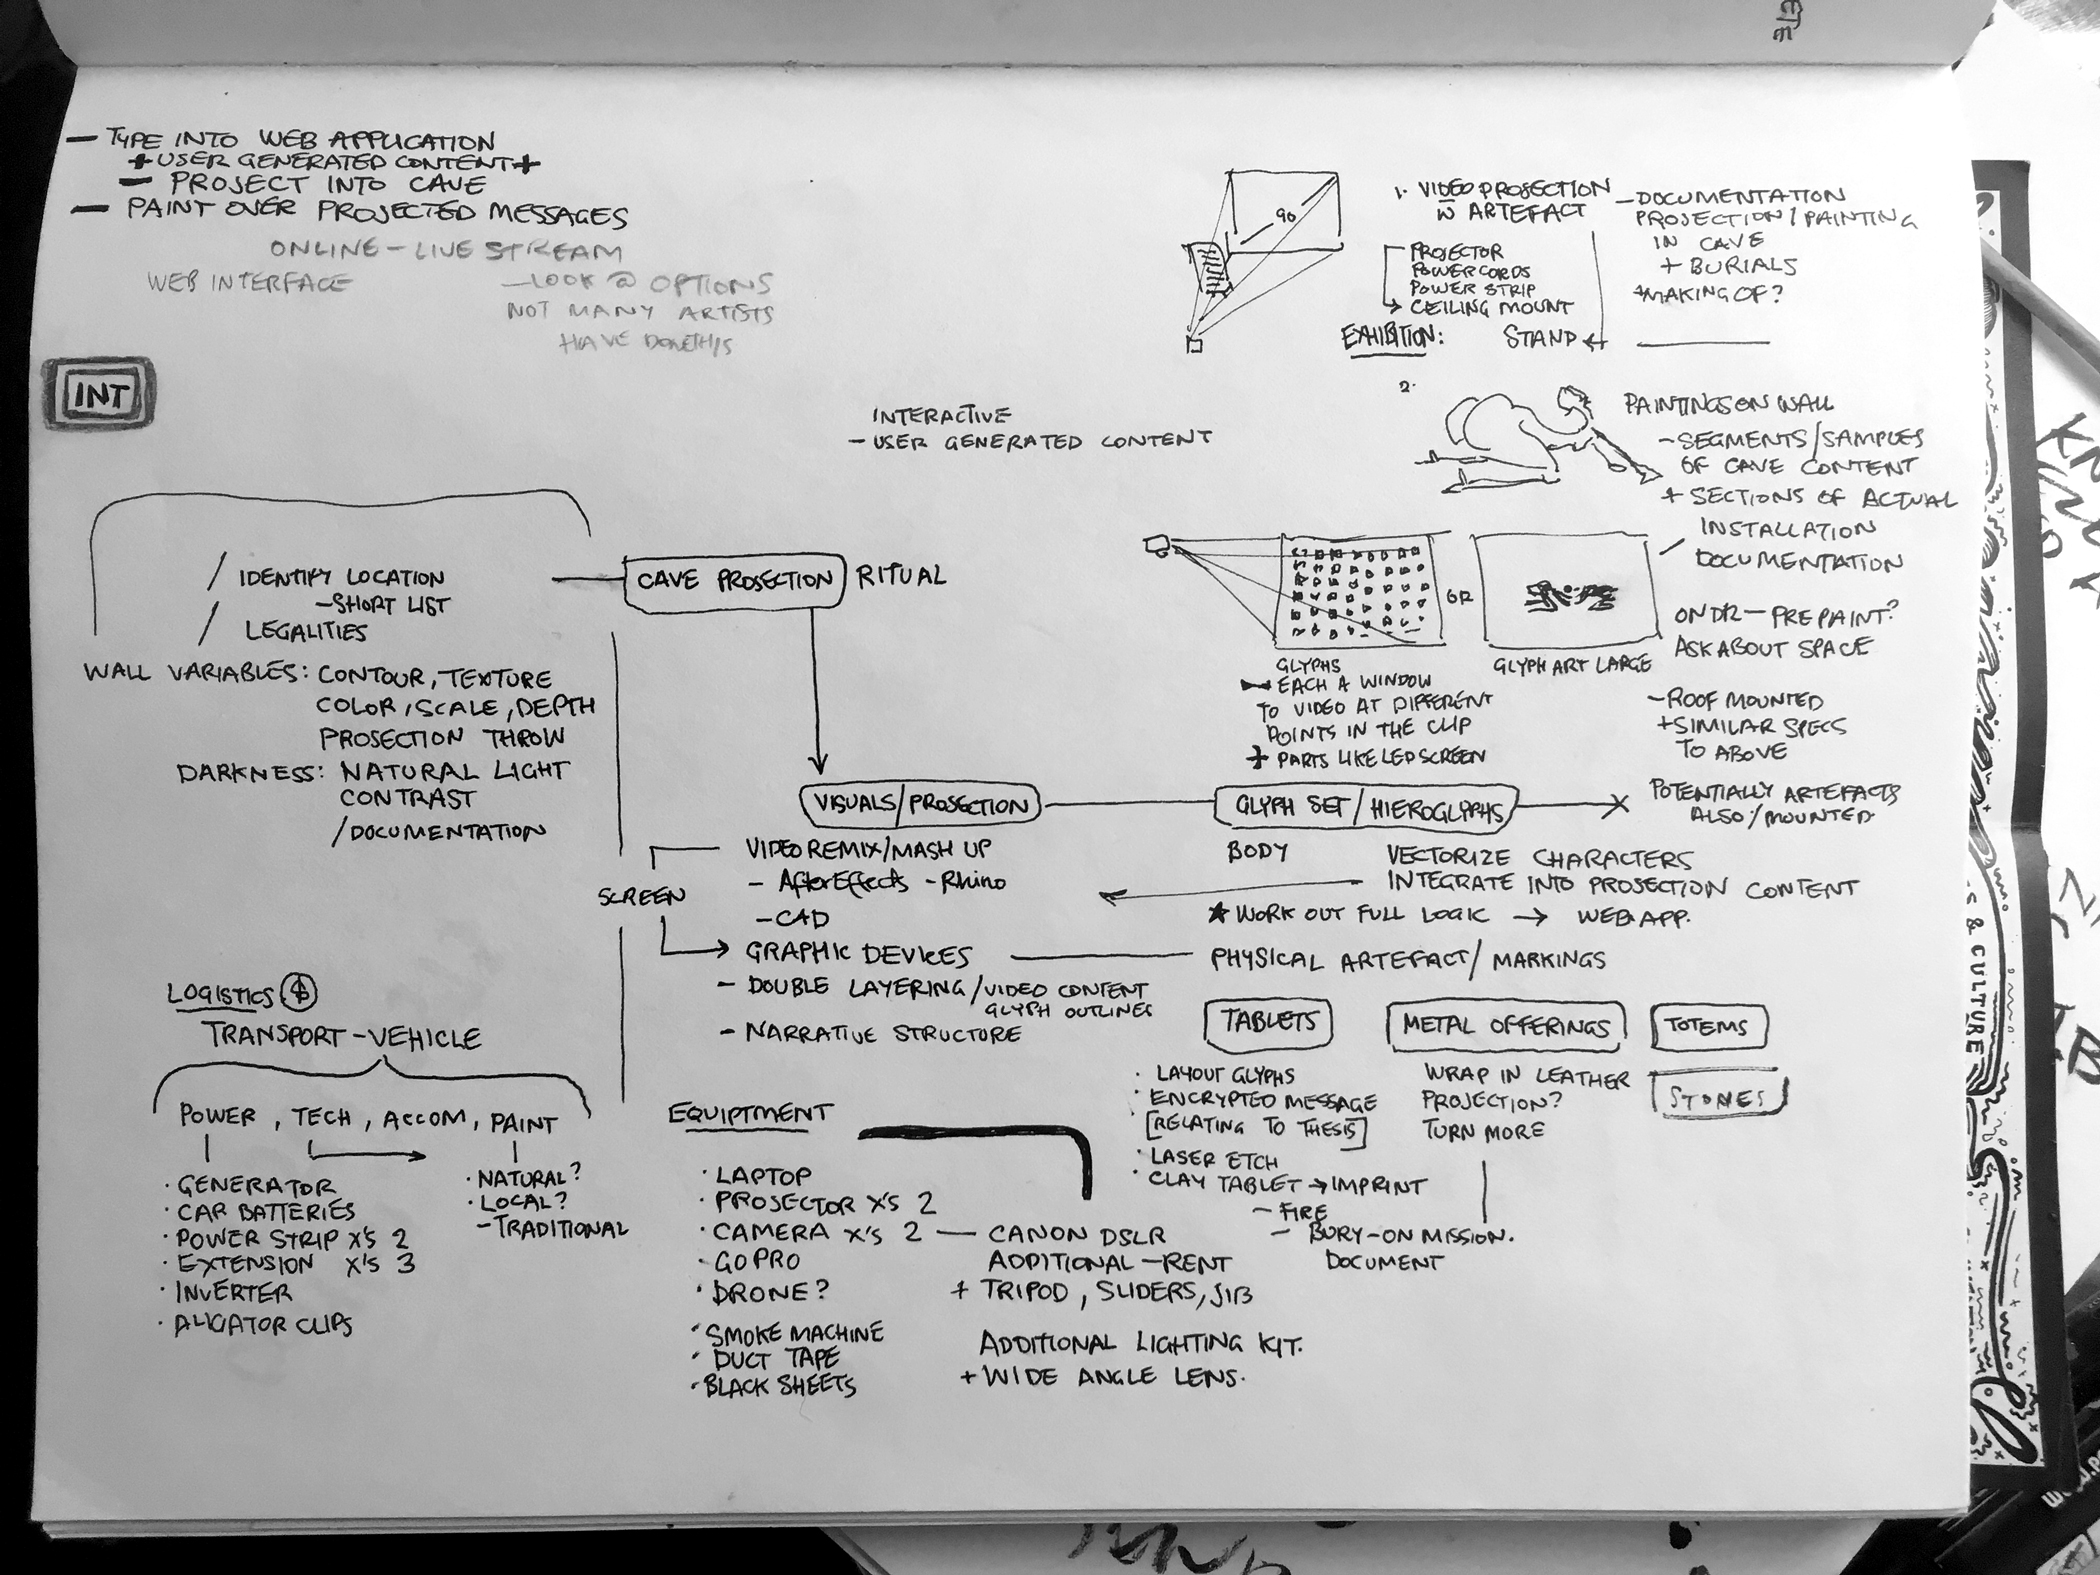 — TYPE INTO WEB APPLICATION
+ USER GENERATED CONTENT +
— PROJECT INTO CAVE
— PAINT OVER PROJECTED MESSAGES
ONLINE – LIVE STREAM
WEB INTERFACE
— LOOK @ OPTIONS
NOT MANY ARTISTS
HAVE DONE THIS
INT
INTERACTIVE
— USER GENERATED CONTENT
90
1. VIDEO PROJECTION
W ARTEFACT
PROJECTOR
POWER CORDS
POWER STRIP
CEILING MOUNT
EXHIBITION: STAND
— DOCUMENTATION
PROJECTION / PAINTING
IN CAVE
+ BURIALS
+ MAKING OF?
2.
PAINTINGS ON WALL
— SEGMENTS/SAMPLES
OF CAVE CONTENT
+ SECTIONS OF ACTUAL
INSTALLATION
DOCUMENTATION
OR
GLYPHS
EACH A WINDOW
TO VIDEO AT DIFFERENT
POINTS IN THE CLIP
+ PARTS LIKE LED SCREEN
GLYPH ART LARGE
PRE PAINT?
ASK ABOUT SPACE
— ROOF MOUNTED
+ SIMILAR SPECS
TO ABOVE
/ IDENTIFY LOCATION
— SHORT LIST
/ LEGALITIES
CAVE PROJECTION RITUAL
WALL VARIABLES: CONTOUR, TEXTURE
COLOR, SCALE, DEPTH
PROJECTION THROW
DARKNESS: NATURAL LIGHT
CONTRAST
/ DOCUMENTATION
VISUALS/PROJECTION
GLYPH SET / HIEROGLYPHS
POTENTIALLY ARTEFACTS
ALSO / MOUNTED.
VIDEO REMIX/MASH UP
— AfterEffects - Rhino
— CAD
SCREEN
GRAPHIC DEVICES
— DOUBLE LAYERING / VIDEO CONTENT
GLYPH OUTLINES
— NARRATIVE STRUCTURE
BODY
VECTORIZE CHARACTERS
INTEGRATE INTO PROJECTION CONTENT
★ WORK OUT FULL LOGIC → WEB APP.
PHYSICAL ARTEFACT / MARKINGS
TABLETS
METAL OFFERINGS
TOTEMS
STONES
· LAYOUT GLYPHS
· ENCRYPTED MESSAGE
[RELATING TO THESIS]
· LASER ETCH
· CLAY TABLET → IMPRINT
— FIRE
— BURY – ON MISSION.
DOCUMENT
WRAP IN LEATHER
PROJECTION?
TURN MORE
LOGISTICS $
TRANSPORT – VEHICLE
POWER, TECH, ACCOM, PAINT
· GENERATOR
· CAR BATTERIES
· POWER STRIP X'S 2
· EXTENSION X'S 3
· INVERTER
· ALIGATOR CLIPS
· NATURAL?
· LOCAL?
— TRADITIONAL
EQUIPTMENT
· LAPTOP
· PROJECTOR X'S 2
· CAMERA X'S 2 — CANON DSLR
· GOPRO
· DRONE?
· SMOKE MACHINE
· DUCT TAPE
· BLACK SHEETS
ADDITIONAL – RENT
+ TRIPOD, SLIDERS, JIB
ADDITIONAL LIGHTING KIT.
+ WIDE ANGLE LENS.
& CULTURE